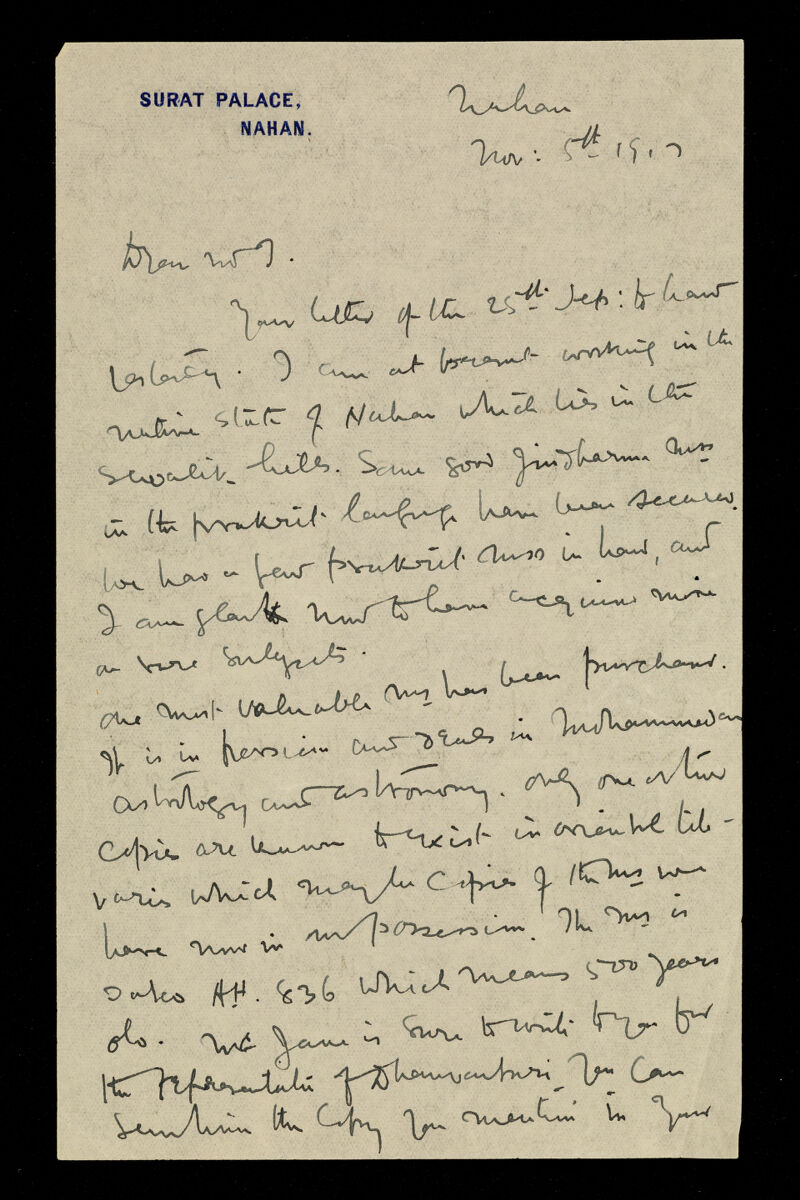 SURAT PALACE,
NAHAN.
Nahan
Nov: 5th 19
Dear
Your letter of the 25th Sep: to hand
yesterday. I am at present working in the
native State of Nahan which lies in the
Sewalik hills. Some good Jindharma mss
in the prakrit language have been secured.
We had a few prakrit mss in hand, and
I am glad now to have acquired more
on rare subjects.
One most valuable ms has been purchased.
It is in persian and deals in Mohammedan
astrology and astronomy. Only one or two
copies are known to exist in oriental lib-
raries which may be copies of the ms we
have now in our possession. The ms is
dated AH. 836 which means 500 years
old. Mr Jane is sure to write to you for
the representation of Dhanvantari. You can
send him the copy you mention in your